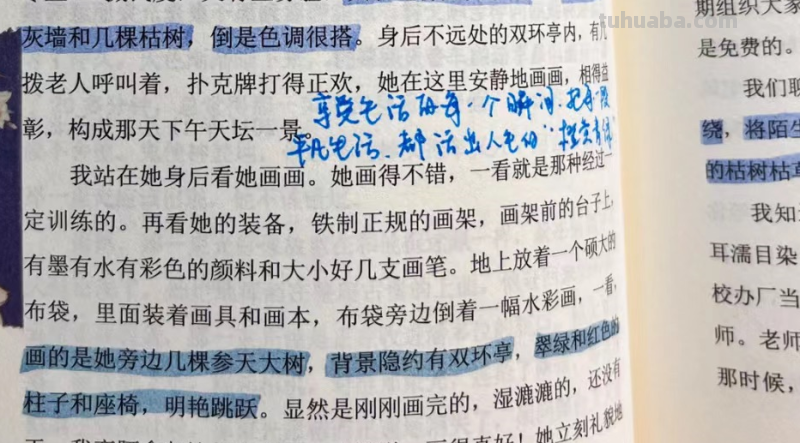 灰墙和几棵枯树，倒是色调很搭。身后不远处的双环亭内，有几
拨老人呼叫着，扑克牌打得正欢，她在这里安静地画画，相得益
彰，构成那天下午天坛一景。
享受生活的每一个瞬间，把每一段
平凡生活，都活出人生的
我站在她身后看她画画。她画得不错，一看就是那种经过一
定训练的。再看她的装备，铁制正规的画架，画架前的台子上，
有墨有水有彩色的颜料和大小好几支画笔。地上放着一个硕大的
布袋，里面装着画具和画本，布袋旁边倒着一幅水彩画，一看，
画的是她旁边几棵参天大树，背景隐约有双环亭，翠绿和红色的
柱子和座椅，明艳跳跃。显然是刚刚画完的，湿漉漉的，还没有
她立刻礼貌地
期组织大家
是免费的。
我们聊
绕，将陌生
的枯树枯草
我知
耳濡目染
校办厂当
师。老师
那时候，
tuhuaba.com